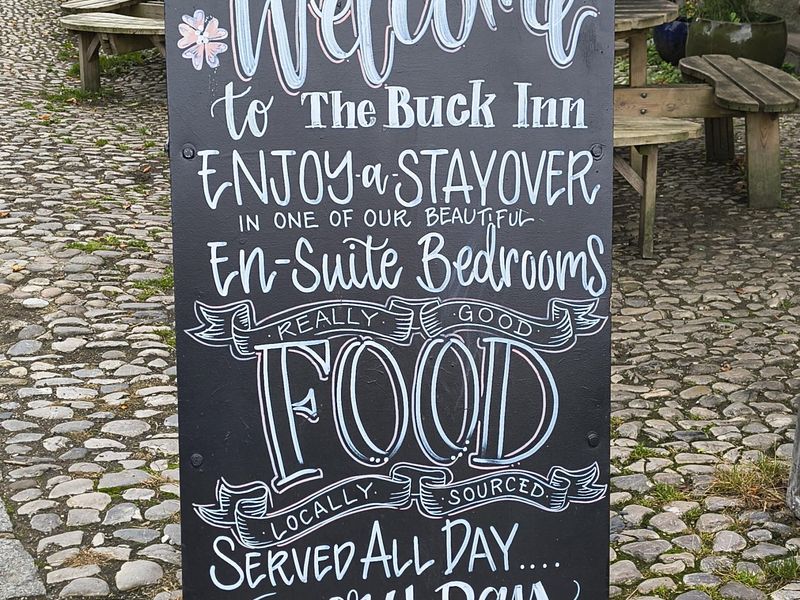 Welcome
to The Buck Inn
ENJOY-a-STAYOVER
IN ONE OF OUR BEAUTIFUL
En-Suite Bedrooms
REALLY GOOD
FOOD
LOCALLY SOURCED
SERVED ALL DAY....
Day